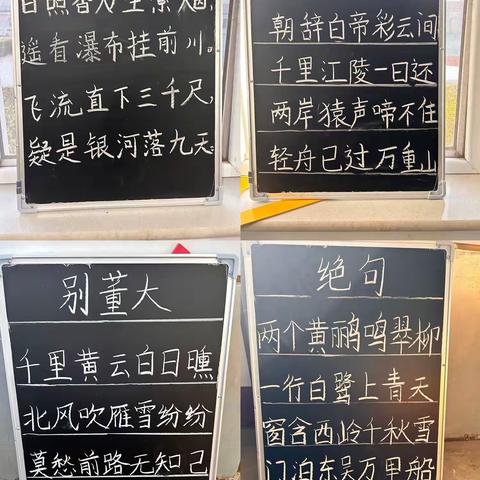 日照香炉生紫烟,
遥看瀑布挂前川。
飞流直下三千尺,
疑是银河落九天。
朝辞白帝彩云间
千里江陵一日还
两岸猿声啼不住
轻舟已过万重山
别董大
千里黄云白日曛
北风吹雁雪纷纷
莫愁前路无知己
绝句
两个黄鹂鸣翠柳
一行白鹭上青天
窗含西岭千秋雪
门泊东吴万里船